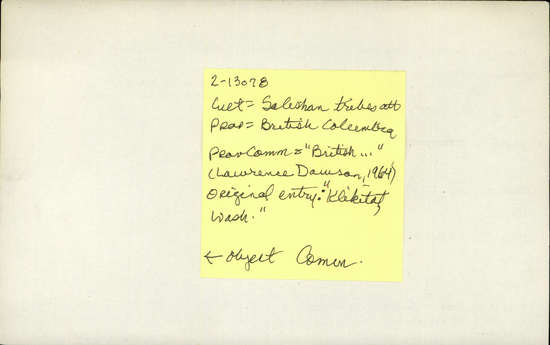 2-13078
Cult = Salishan tribes att
Prov = British Columbia
ProvComm = "British ..."
(Lawrence Dawson, 1964)
Original entry: "Klikitat,
Wash."
← Object Comm.